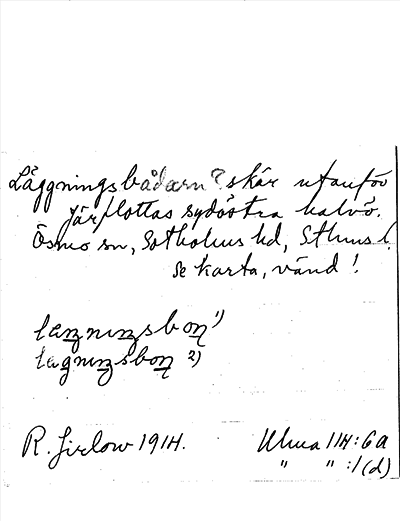 Läggningsbådarn? skär utanför
Järflottas sydöstra halvö.
Ösmo sn, Sotholms hd, Sthms l.
Se karta, vänd!
lægnıŋsbon 2)
R. Jirlow 1914.
Ulma 114:6a
" " :1(d)